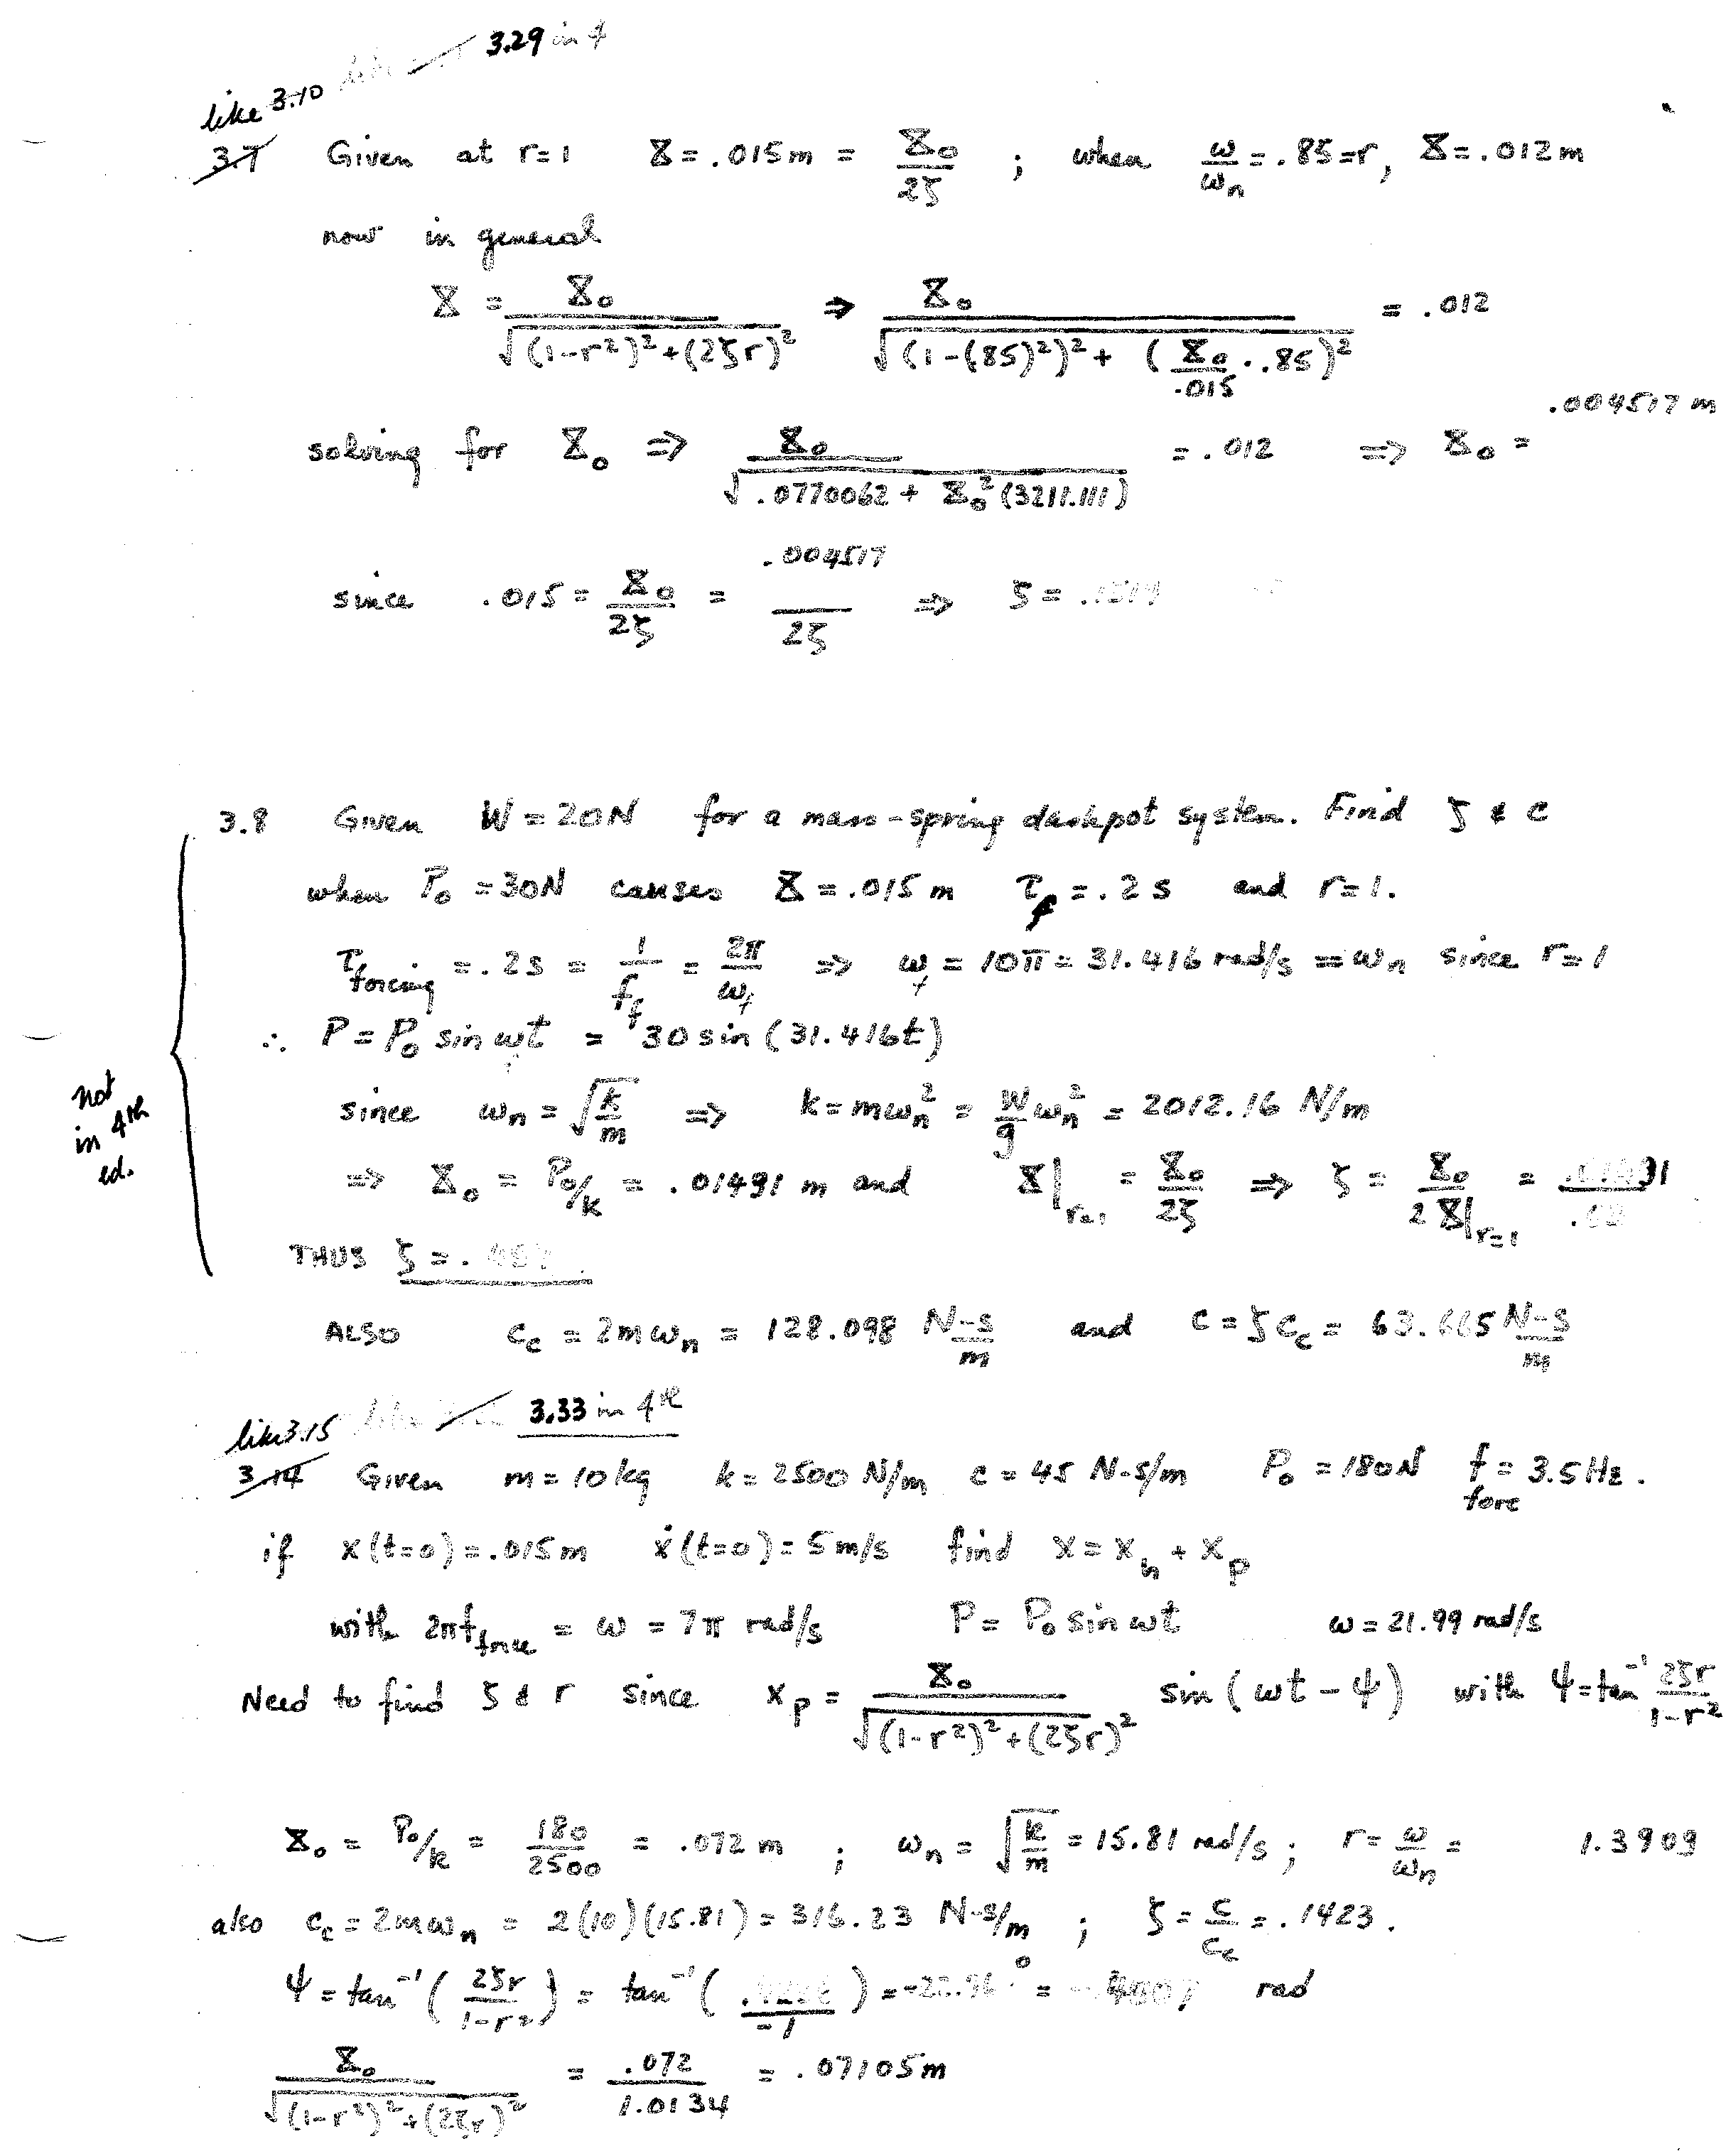 3.29 in 4
like 3.10
3.7 Given at r=1 X = .015m = X₀/2ζ ; when ω/ωn = .85 = r, X = .012m
now in general
X = X₀/√((1-r²)²+(2ζr)²) ⇒ X₀/√((1-(.85)²)²+(X₀/.015 · .85)²) = .012
solving for X₀ ⇒ X₀/√(.0770062 + X₀²(3211.111)) = .012 ⇒ X₀ = .004517 m
since .015 = X₀/2ζ = .004517/2ζ ⇒ ζ =
3.8 Given W = 20N for a mass-spring dashpot system. Find ζ & c
when P₀ = 30N causes X = .015 m τf = .2 s and r=1.
τforcing = .2s = 1/ff = 2π/ωf ⇒ ωf = 10π = 31.416 rad/s = ωn since r=1
∴ P = P₀ sin ωt = 30 sin (31.416t)
since ωn = √(k/m) ⇒ k = mωn² = W/g ωn² = 2012.16 N/m
not in 4th ed.
⇒ X₀ = P₀/k = .01491 m and X|r=1 = X₀/2ζ ⇒ ζ = X₀/2X|r=1 =
THUS ζ = .
ALSO cc = 2mωn = 128.098 N-s/m and c = ζcc = 63.665 N-s/m
3.33 in 4th
like 3.15
3.14 Given m = 10kg k = 2500 N/m c = 45 N-s/m P₀ = 180N fforc = 3.5 Hz.
if x(t=0) = .015m ẋ(t=0) = 5 m/s find x = xh + xp
with 2πfforce = ω = 7π rad/s P = P₀ sin ωt ω = 21.99 rad/s
Need to find ζ & r since xp = X₀/√((1-r²)²+(2ζr)²) sin(ωt - ψ) with ψ = tan⁻¹ 2ζr/1-r²
X₀ = P₀/k = 180/2500 = .072 m ; ωn = √(k/m) = 15.81 rad/s ; r = ω/ωn = 1.3909
also cc = 2mωn = 2(10)(15.81) = 316.23 N-s/m ; ζ = c/cc = .1423.
ψ = tan⁻¹(2ζr/1-r²) = tan⁻¹( /-1) = ° = rad
X₀/√((1-r²)²+(2ζr)²) = .072/1.0134 = .07105m